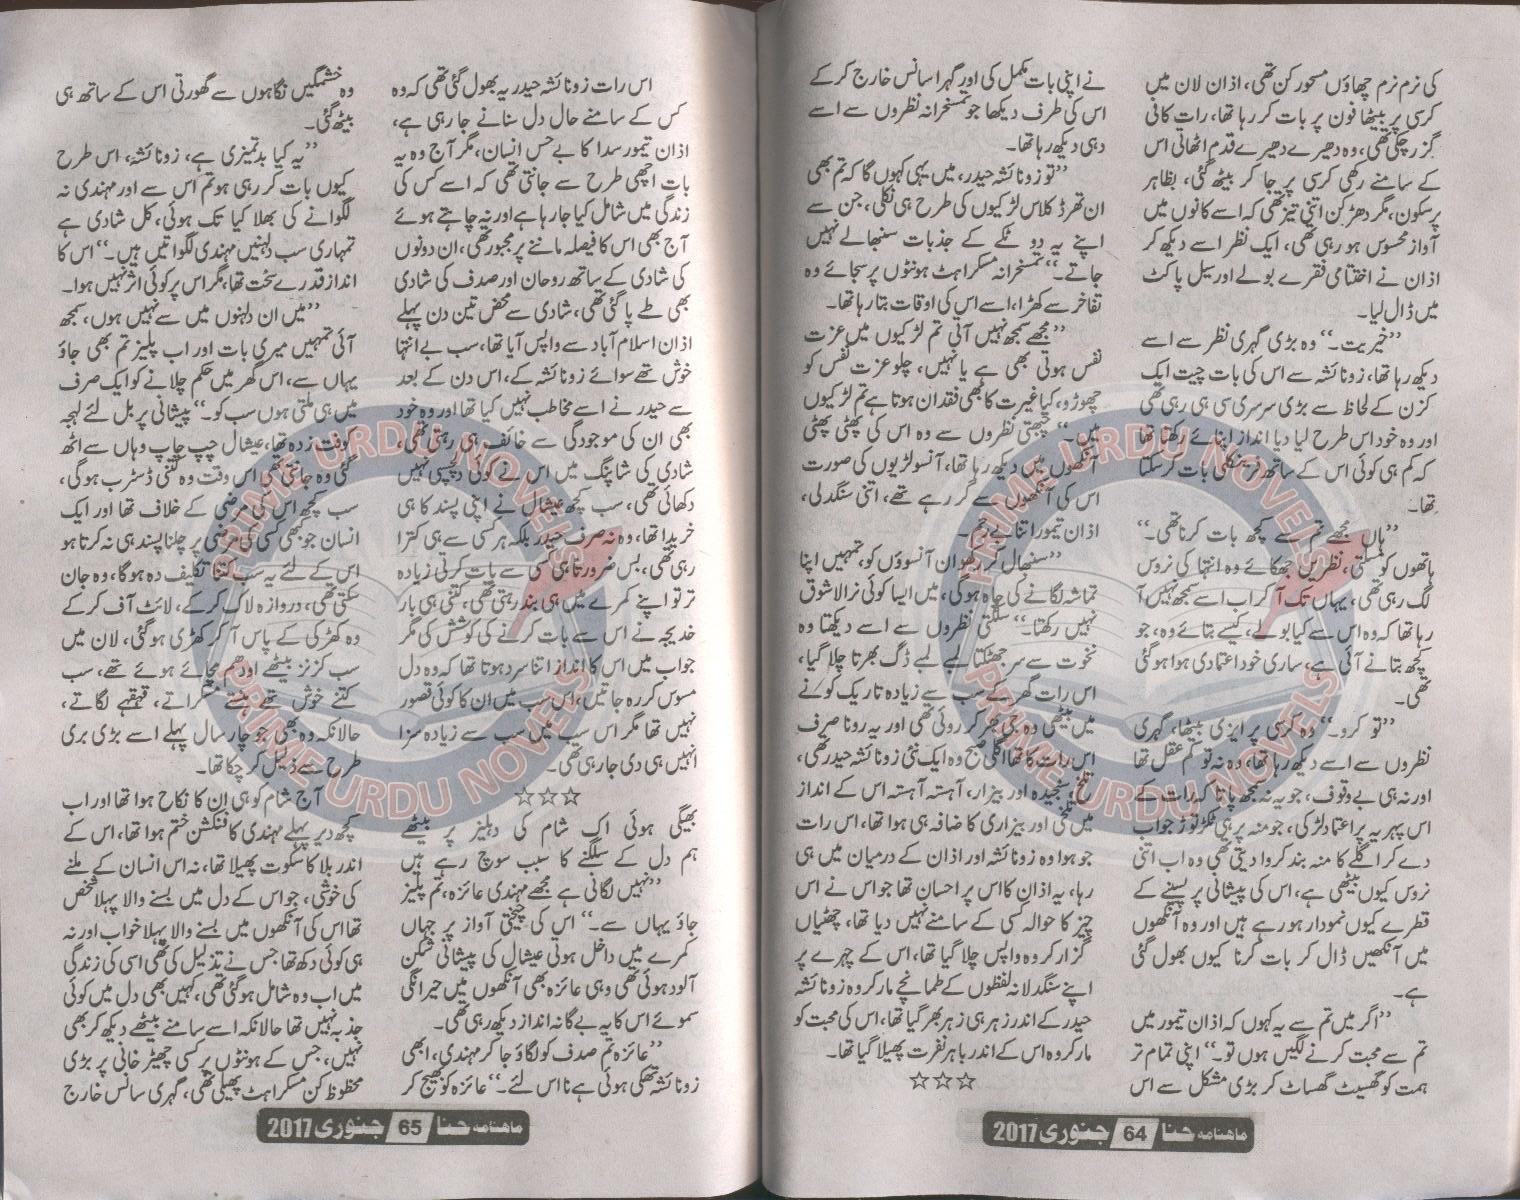 کی نرم نرم چھاؤں مسحور کن تھی، اذان لان میں
کرسی پر بیٹھا فون پر بات کر رہا تھا، رات کافی
گزر چکی تھی، وہ دھیرے دھیرے قدم اٹھاتی اس
کے سامنے رکھی کرسی پر جا کر بیٹھ گئی، بظاہر
پرسکون، مگر دھڑکن اتنی تیز تھی کہ اسے کانوں میں
آواز محسوس ہو رہی تھی، ایک نظر اسے دیکھ کر
اذان نے اختتامی فقرے بولے اور سیل پاکٹ
میں ڈال لیا۔
’’خیریت۔‘‘ وہ بڑی گہری نظر سے اسے
دیکھ رہا تھا، زونائشہ سے اس کی بات چیت ایک
کزن کے لحاظ سے بڑی سرسری سی ہی رہی تھی
اور وہ خود اس طرح لیا دیا انداز اپنائے رکھتا تھا
کہ کم ہی کوئی اس کے ساتھ فرینکلی بات کر سکتا
تھا۔
’’ہاں مجھے تم سے کچھ بات کرنا تھی۔‘‘
ہاتھوں کو مسلتی، نظریں جھکائے وہ انتہا کی نروس
لگ رہی تھی، یہاں تک آ کر اب اسے سمجھ نہیں آ
رہا تھا کہ وہ اس سے کیا بولے، کیسے بتائے وہ، جو
کچھ بتانے آئی ہے، ساری خود اعتمادی ہوا ہو گئی
تھی۔
’’تو کرو۔‘‘ وہ کرسی پر ایزی بیٹھا، گہری
نظروں سے اسے دیکھ رہا تھا، وہ نہ تو کم عقل تھا
اور نہ ہی بے وقوف، جو یہ نہ سمجھ پاتا کہ رات کے
اس پہر یہ پر اعتماد لڑکی، جو منہ پر ہی ٹکڑ توڑ جواب
دے کر اگلے کا منہ بند کروا دیتی تھی وہ اب اتنی
نروس کیوں بیٹھی ہے، اس کی پیشانی پر پسینے کے
قطرے کیوں نمودار ہو رہے ہیں اور وہ آنکھوں
میں آنکھیں ڈال کر بات کرنا کیوں بھول گئی
ہے۔
’’اگر میں تم سے یہ کہوں کہ اذان تیمور میں
تم سے محبت کرنے لگیں ہوں تو۔‘‘ اپنی تمام تر
ہمت کو گھسیٹ گھساٹ کر بڑی مشکل سے اس
نے اپنی بات مکمل کی اور گہرا سانس خارج کر کے
اس کی طرف دیکھا جو تمسخرانہ نظروں سے اسے
دہی دیکھ رہا تھا۔
’’تو زونائشہ حیدر، میں یہی کہوں گا کہ تم بھی
ان تھرڈ کلاس لڑکیوں کی طرح ہی نکلی، جن سے
اپنے یہ دو ٹکے کے جذبات سنبھالے نہیں
جاتے۔‘‘ تمسخرانہ مسکراہٹ ہونٹوں پر سجائے وہ
تفاخر سے کھڑا، اسے اس کی اوقات بتا رہا تھا۔
’’مجھے سمجھ نہیں آتی تم لڑکیوں میں عزت
نفس ہوتی بھی ہے یا نہیں، چلو عزت نفس کو
چھوڑو، کیا غیرت کا بھی فقدان ہوتا ہے تم لڑکیوں
میں۔‘‘ چبھتی نظروں سے وہ اس کی پھٹی پھٹی
آنکھوں میں دیکھ رہا تھا، آنسو لڑیوں کی صورت
اس کی آنکھوں سے گر رہے تھے، اتنی سنگدلی،
اذان تیمور اتنا بے رحم۔
’’سنبھال کر رکھو ان آنسوؤں کو، تمہیں اپنا
تماشہ لگانے کی چاہ ہو گی، میں ایسا کوئی نرالا شوق
نہیں رکھتا۔‘‘ سلگتی نظروں سے اسے دیکھتا وہ
نخوت سے سر جھٹکتا لمبے لمبے ڈگ بھرتا چلا گیا،
اس رات گھر کے سب سے زیادہ تاریک کونے
میں بیٹھی وہ جی بھر کر روئی تھی اور یہ رونا صرف
اس رات کا تھا اگلی صبح وہ ایک نئی زونائشہ حیدر تھی،
تلخ، سنجیدہ اور بیزار، آہستہ آہستہ اس کے انداز
میں تلخی اور بیزاری کا اضافہ ہی ہوا تھا، اس رات
جو ہوا وہ زونائشہ اور اذان کے درمیان میں ہی
رہا، یہ اذان کا اس پر احسان تھا جو اس نے اس
چیز کا حوالہ کسی کے سامنے نہیں دیا تھا، چھٹیاں
گزار کر وہ واپس چلا گیا تھا، اس کے چہرے پر
اپنے سنگدلانہ لفظوں کے طمانچے مار کر وہ زونائشہ
حیدر کے اندر زہر ہی زہر بھر گیا تھا، اس کی محبت کو
مار کر وہ اس کے اندر باہر نفرت پھیلا گیا تھا۔
☆☆☆
ماہنامہ حنا 64 جنوری 2017
اس رات زونائشہ حیدر یہ بھول گئی تھی کہ وہ
کس کے سامنے حال دل سنانے جا رہی ہے،
اذان تیمور سدا کا بے حس انسان، مگر آج وہ یہ
بات اچھی طرح سے جانتی تھی کہ اسے کس کی
زندگی میں شامل کیا جا رہا ہے اور نہ چاہتے ہوئے
آج بھی اس کا فیصلہ ماننے پر مجبور تھی، ان دونوں
کی شادی کے ساتھ روحان اور صدف کی شادی
بھی طے پا گئی تھی، شادی سے محض تین دن پہلے
اذان اسلام آباد سے واپس آیا تھا، سب بے انتہا
خوش تھے سوائے زونائشہ کے، اس دن کے بعد
سے حیدر نے اسے مخاطب نہیں کیا تھا اور وہ خود
بھی ان کی موجودگی سے خائف ہی رہتی تھی،
شادی کی شاپنگ میں اس نے کوئی دلچسپی نہیں
دکھائی تھی، سب کچھ عیشال نے اپنی پسند کا ہی
خریدا تھا، وہ نہ صرف حیدر بلکہ ہر کسی سے ہی کترا
رہی تھی، بس ضرورتاً ہی کسی سے بات کرتی زیادہ
تر تو اپنے کمرے میں ہی بند رہتی تھی، کتنی ہی بار
خدیجہ نے اس سے بات کرنے کی کوشش کی مگر
جواب میں اس کا انداز اتنا سرد ہوتا تھا کہ وہ دل
مسوس کر رہ جاتیں، اس سب میں ان کا کوئی قصور
نہیں تھا مگر اس سب میں سب سے زیادہ سزا
انہیں ہی دی جا رہی تھی۔
☆☆☆
بھیگی ہوئی اک شام کی دہلیز پر بیٹھے
ہم دل کے سلگنے کا سبب سوچ رہے ہیں
’’نہیں لگانی ہے مجھے مہندی عائزہ، تم پلیز
جاؤ یہاں سے۔‘‘ اس کی چیختی آواز پر جہاں
کمرے میں داخل ہوتی عیشال کی پیشانی شکن
آلود ہوئی تھی وہی عائزہ بھی آنکھوں میں حیرانگی
سموئے اس کا یہ بے گانہ انداز دیکھ رہی تھی۔
’’عائزہ تم صدف کو لگاؤ جا کر مہندی، ابھی
زونائشہ تھکی ہوئی ہے نا اس لئے۔‘‘ عائزہ کو بھیج کر
وہ خشمگیں نگاہوں سے گھورتی اس کے ساتھ ہی
بیٹھ گئی۔
’’یہ کیا بدتمیزی ہے، زونائشہ، اس طرح
کیوں بات کر رہی ہو تم اس سے اور مہندی نہ
لگوانے کی بھلا کیا تک ہوئی، کل شادی ہے
تمہاری سب دلہنیں مہندی لگواتیں ہیں۔‘‘ اس کا
انداز قدرے سخت تھا، مگر اس پر کوئی اثر نہیں ہوا۔
’’میں ان دلہنوں میں سے نہیں ہوں، سمجھ
آئی تمہیں میری بات اور اب پلیز تم بھی جاؤ
یہاں سے، اس گھر میں حکم چلانے کو ایک صرف
میں ہی ملتی ہوں سب کو۔‘‘ پیشانی پر بل لئے لہجہ
کوفت زدہ تھا، عیشال چپ چاپ وہاں سے اٹھ
گئی وہ جانتی تھی اس وقت وہ کتنی ڈسٹرب ہو گی،
سب کچھ اس کی مرضی کے خلاف تھا اور ایک
انسان جو کبھی کسی کی مرضی پر چلنا پسند ہی نہ کرتا ہو
اس کے لئے یہ سب کتنا تکلیف دہ ہو گا، وہ جان
سکتی تھی، دروازہ لاک کر کے، لائٹ آف کر کے
وہ کھڑکی کے پاس آ کر کھڑی ہو گئی، لان میں
سب کزنز بیٹھے اودھم مچائے ہوئے تھے، سب
کتنے خوش تھے ہنستے مسکراتے، قہقہے لگاتے،
حالانکہ وہ بھی جو چار سال پہلے اسے بڑی بری
طرح سے ذلیل کر چکا تھا۔
آج شام کو ہی ان کا نکاح ہوا تھا اور اب
کچھ دیر پہلے مہندی کا فنکشن ختم ہوا تھا، اس کے
اندر بلا کا سکوت پھیلا تھا، نہ اس انسان کے ملنے
کی خوشی، جو اس کے دل میں بسنے والا پہلا شخص
تھا اس کی آنکھوں میں بسنے والا پہلا خواب اور نہ
ہی کوئی دکھ تھا جس نے تذلیل کی تھی اسی کی زندگی
میں اب وہ شامل ہو گئی تھی، کہیں بھی دل میں کوئی
جذبہ نہیں تھا حالانکہ اسے سامنے بیٹھے دیکھ کر بھی
نہیں، جس کے ہونٹوں پر کسی چھیڑ خانی پر بڑی
محظوظ کن مسکراہٹ پھیلی تھی، گہری سانس خارج
ماہنامہ حنا 65 جنوری 2017
PRIME URDU NOVELS
PRIME URDU NOVELS
PRIME URDU NOVELS
PRIME URDU NOVELS